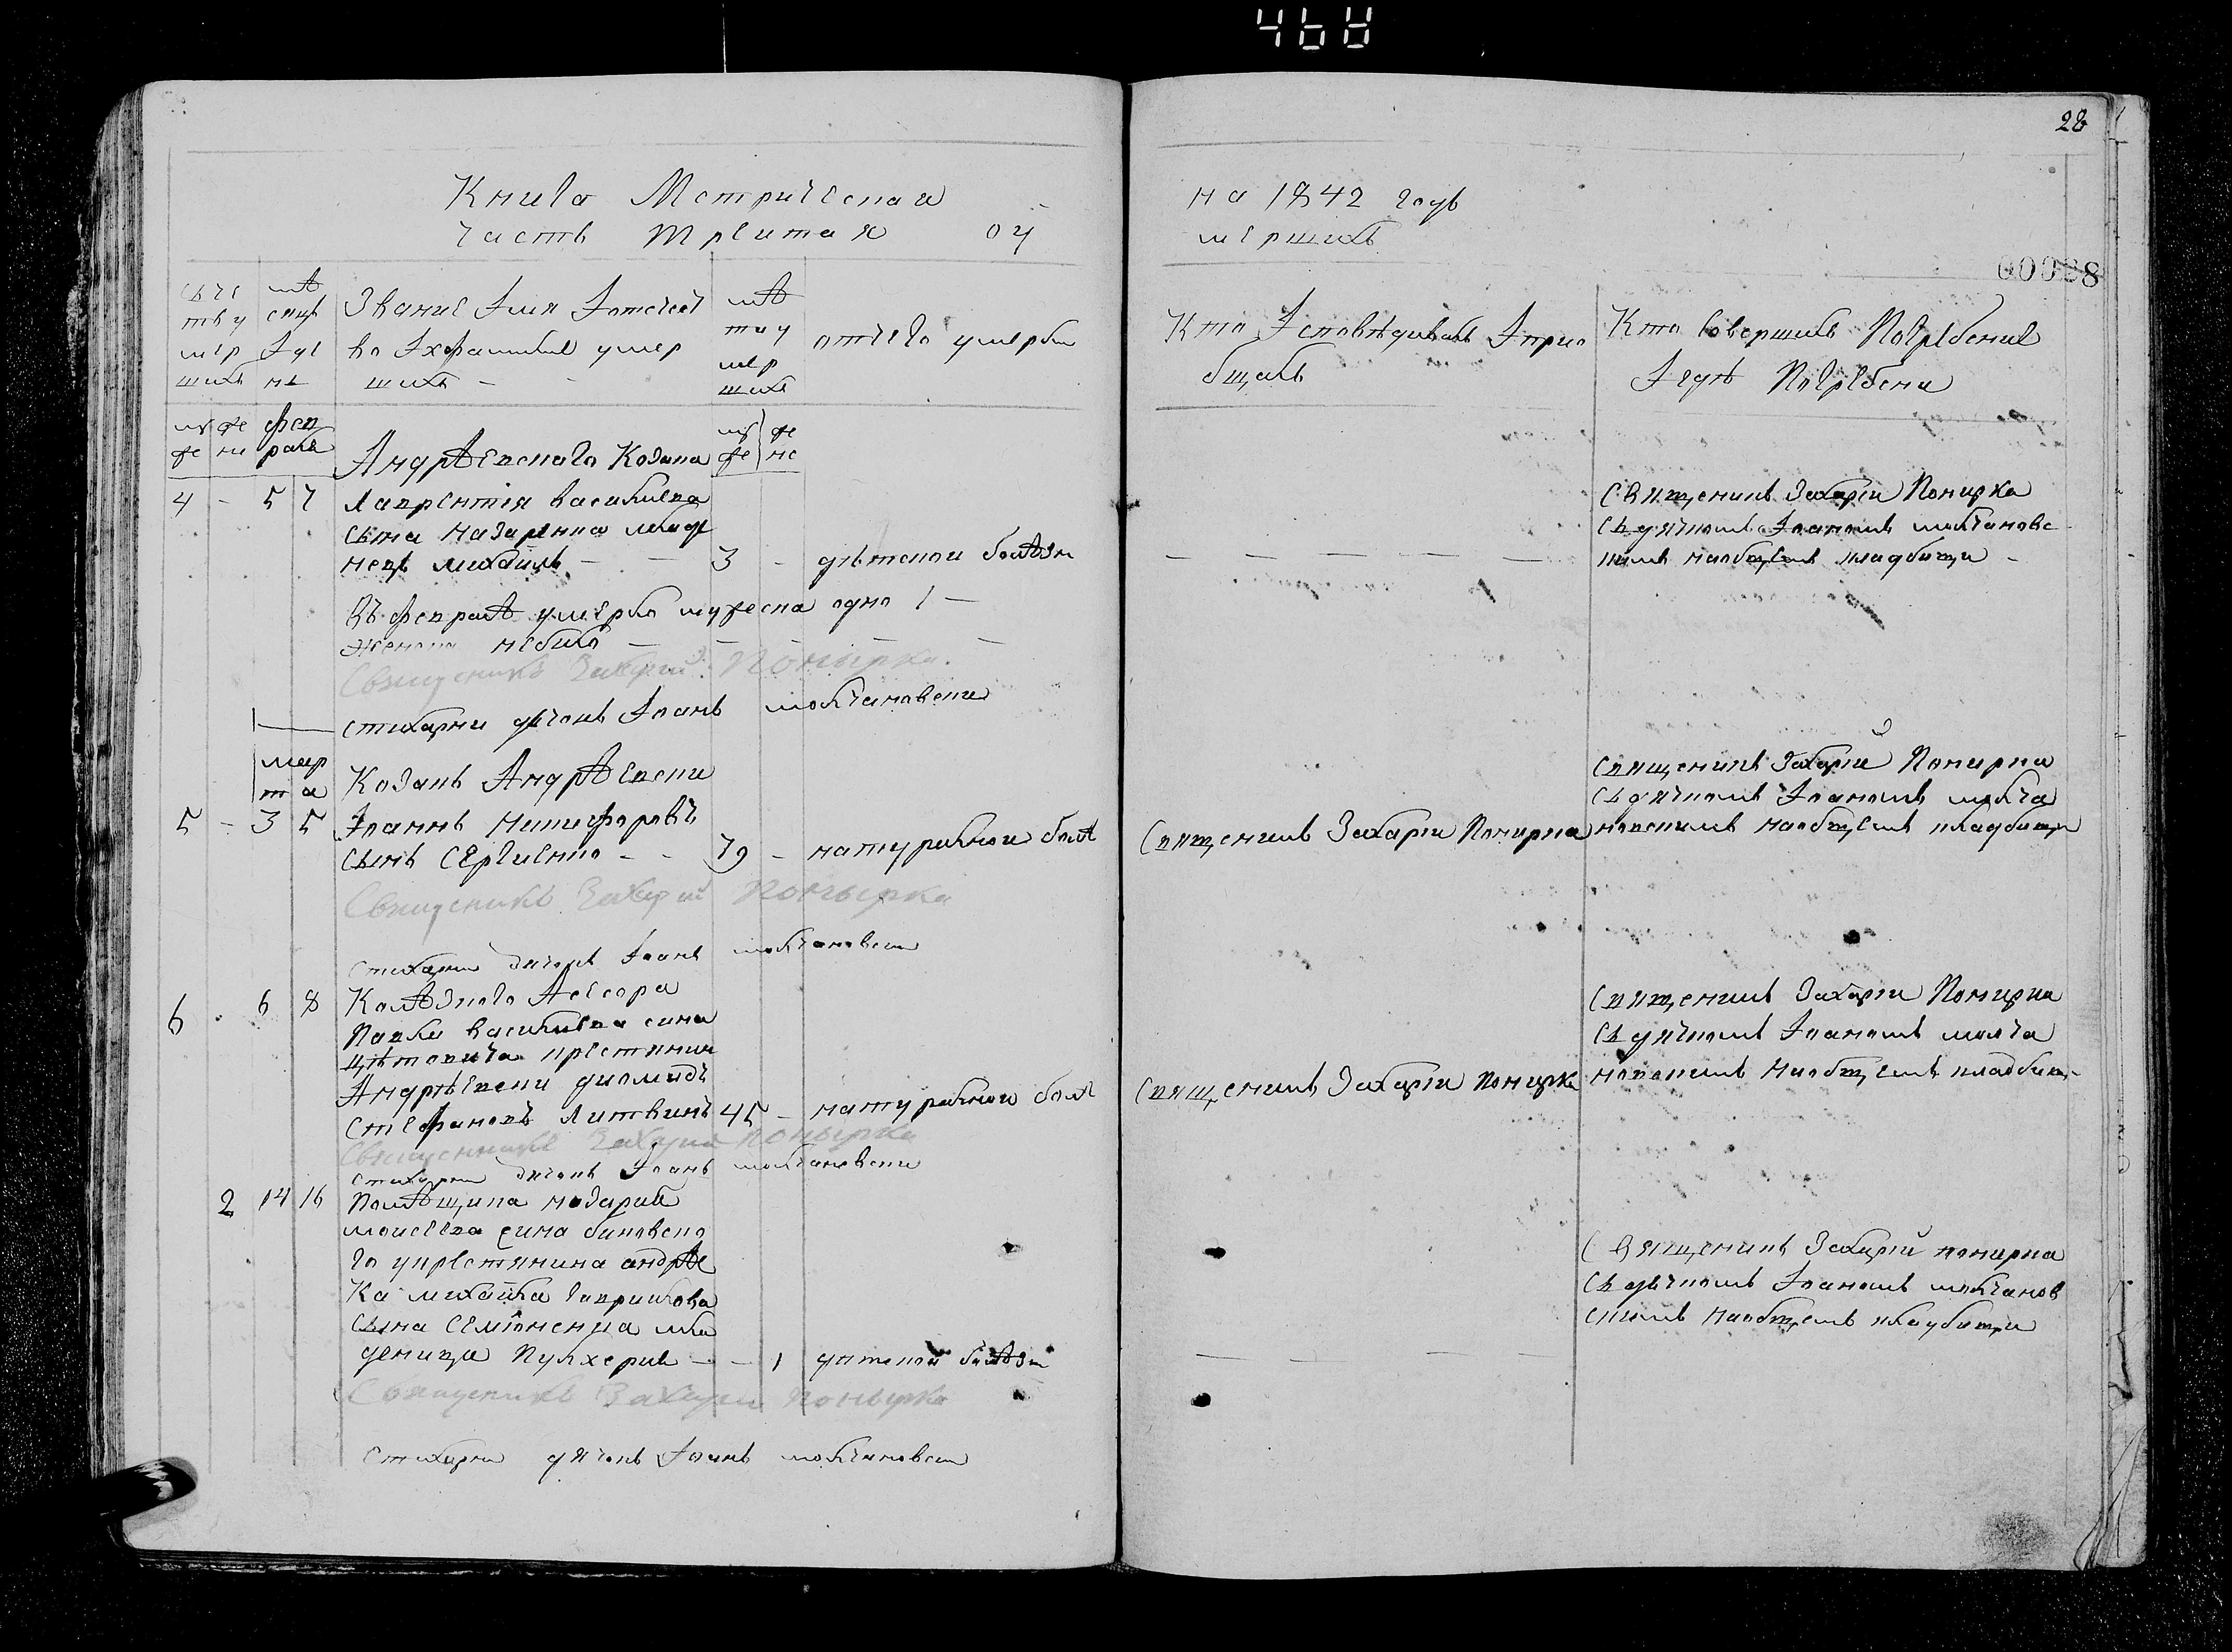 468
28
00028
Книга Метрическая
на 1842 годъ
Часть Третая
оу
мершихъ
Счетъ умершихъ
Мѣсяцъ и день
Званіе Имя Iотечест
во Iхфамиліе умер
шихъ
лѣта умершихъ
отчего умерли
Кто Iсповѣдивалъ Iприо
бщалъ
Кто Совершилъ Погребеніе
Iгдѣ Погребени
муже жени
февраля
муже жене
Андрѣевскаго Козака
4 - 5 7 Лаврентія василиева
сына Назаренка младе
нецъ михаилъ - - 3 - дѣтской болѣзн
Священикъ Захарій Понирка
съ дячкомъ Iоаномъ молчановс
кимъ наобщемъ кладбищи -
Въ февралѣ умерло мужеска одно 1 -
женска небило
Священикъ Захарій Понырка.
стихарни дячокъ Iоанъ молчановски
марта
Козакъ Андрѣевски
5 - 3 5 Iоаннъ Никифоровъ
сынъ Сергиенко - - 79 - натуралной болѣ
Священикъ Захарій Понирка
Священикъ Захарій Понирка
съ дячкомъ Iоаномъ молча
новскимъ наобщемъ кладбищи
Священикъ Захарій Понырка
стихарни дячокъ Iоанъ молчановски
6 - 6 8 Колѣзкого Асесора
Павла василиева сина
крестянин
Андрѣевски диомидъ
Стефановъ Литвинъ 45 - натуралной болѣ
Священикъ Захарій Понирка
Священикъ Захарій Понирка
съ дячкомъ Iоаномъ молча
новскимъ наобщемъ кладбищ
Священикъ Захарій Понырка
стихарни дячокъ Iоанъ молчановски
2 14 16 Помѣщика
моисеева сина
го крестянина андрѣе
ка михаила гаврилова
сына Семіоненка мла
деница Пулхерия - - 1 дѣтской болѣзн
Священикъ Захарій понирка
съ дячкомъ Iоаномъ молчанов
скимъ наобщемъ кладбищи
Священикъ Захарій Понырка
Стихарни дячокъ Iоанъ молчановски